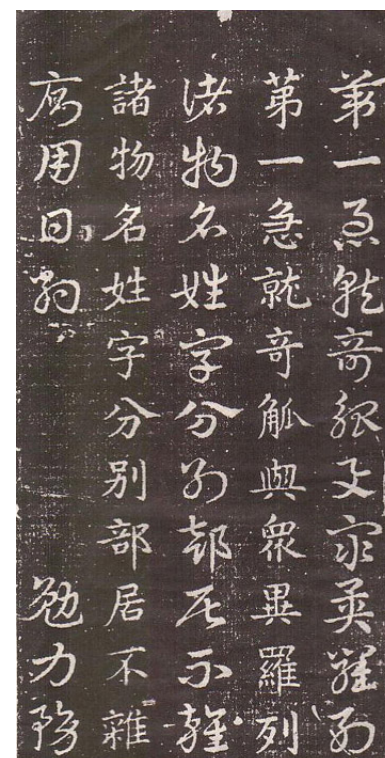 苐一急就奇觚与衆異羅列
苐一急就竒觚與衆異羅列
諸物名姓字分別部居不雜
諸物名姓字分别部居不雜
廁用日約　勉力務